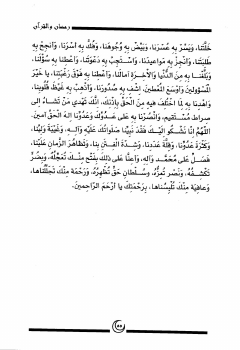 رمضان والقرآن
خَلَّتَنا، وَيَسِّرْ بِهِ عُسْرَنا، وَبَيِّضْ بِهِ وُجُوهَنا، وَفُكَّ بِهِ أَسْرَنا، وَأَنْجِحْ بِهِ
طَلِبَتَنا، وَأَنْجِزْ بِهِ مَواعيدَنا، وَاسْتَجِبْ بِهِ دَعْوَتَنا، وَأَعْطِنا بِهِ سُؤْلَنا،
وَبَلِّغْنا بِهِ مِنَ الدُّنْيا وَالْآخِرَةِ آمالَنا، وَأَعْطِنا بِهِ فَوْقَ رَغْبَتِنا، يا خَيْرَ
الْمَسْؤولينَ وَأَوْسَعَ الْمُعْطينَ، اشْفِ بِهِ صُدُورَنا، وَأَذْهِبْ بِهِ غَيْظَ قُلُوبِنا،
وَاهْدِنا بِهِ لِمَا اخْتُلِفَ فيهِ مِنَ الْحَقِّ بِإِذْنِكَ، إِنَّكَ تَهْدي مَنْ تَشاءُ إِلى
صِراطٍ مُسْتَقيمٍ، وَانْصُرْنا بِهِ عَلى عَدُوِّكَ وَعَدُوِّنا إِلهَ الْحَقِّ آمينَ.
اللَّهُمَّ إِنَّا نَشْكُو إِلَيْكَ فَقْدَ نَبِيِّنا صَلَواتُكَ عَلَيْهِ وَآلِهِ، وَغَيْبَةَ وَلِيِّنا،
وَكَثْرَةَ عَدُوِّنا، وَقِلَّةَ عَدَدِنا، وَشِدَّةَ الْفِتَنِ بِنا، وَتَظاهُرَ الزَّمانِ عَلَيْنا،
فَصَلِّ عَلى مُحَمَّدٍ وَآلِهِ، وَأَعِنَّا عَلى ذلِكَ بِفَتْحٍ مِنْكَ تُعَجِّلُهُ، وَبِضُرٍّ
تَكْشِفُهُ، وَنَصْرٍ تُعِزُّهُ، وَسُلْطانِ حَقٍّ تُظْهِرُهُ، وَرَحْمَةٍ مِنْكَ تُجَلِّلُناها،
وَعافِيَةٍ مِنْكَ تُلْبِسُناها، بِرَحْمَتِكَ يا أَرْحَمَ الرَّاحِمينَ.